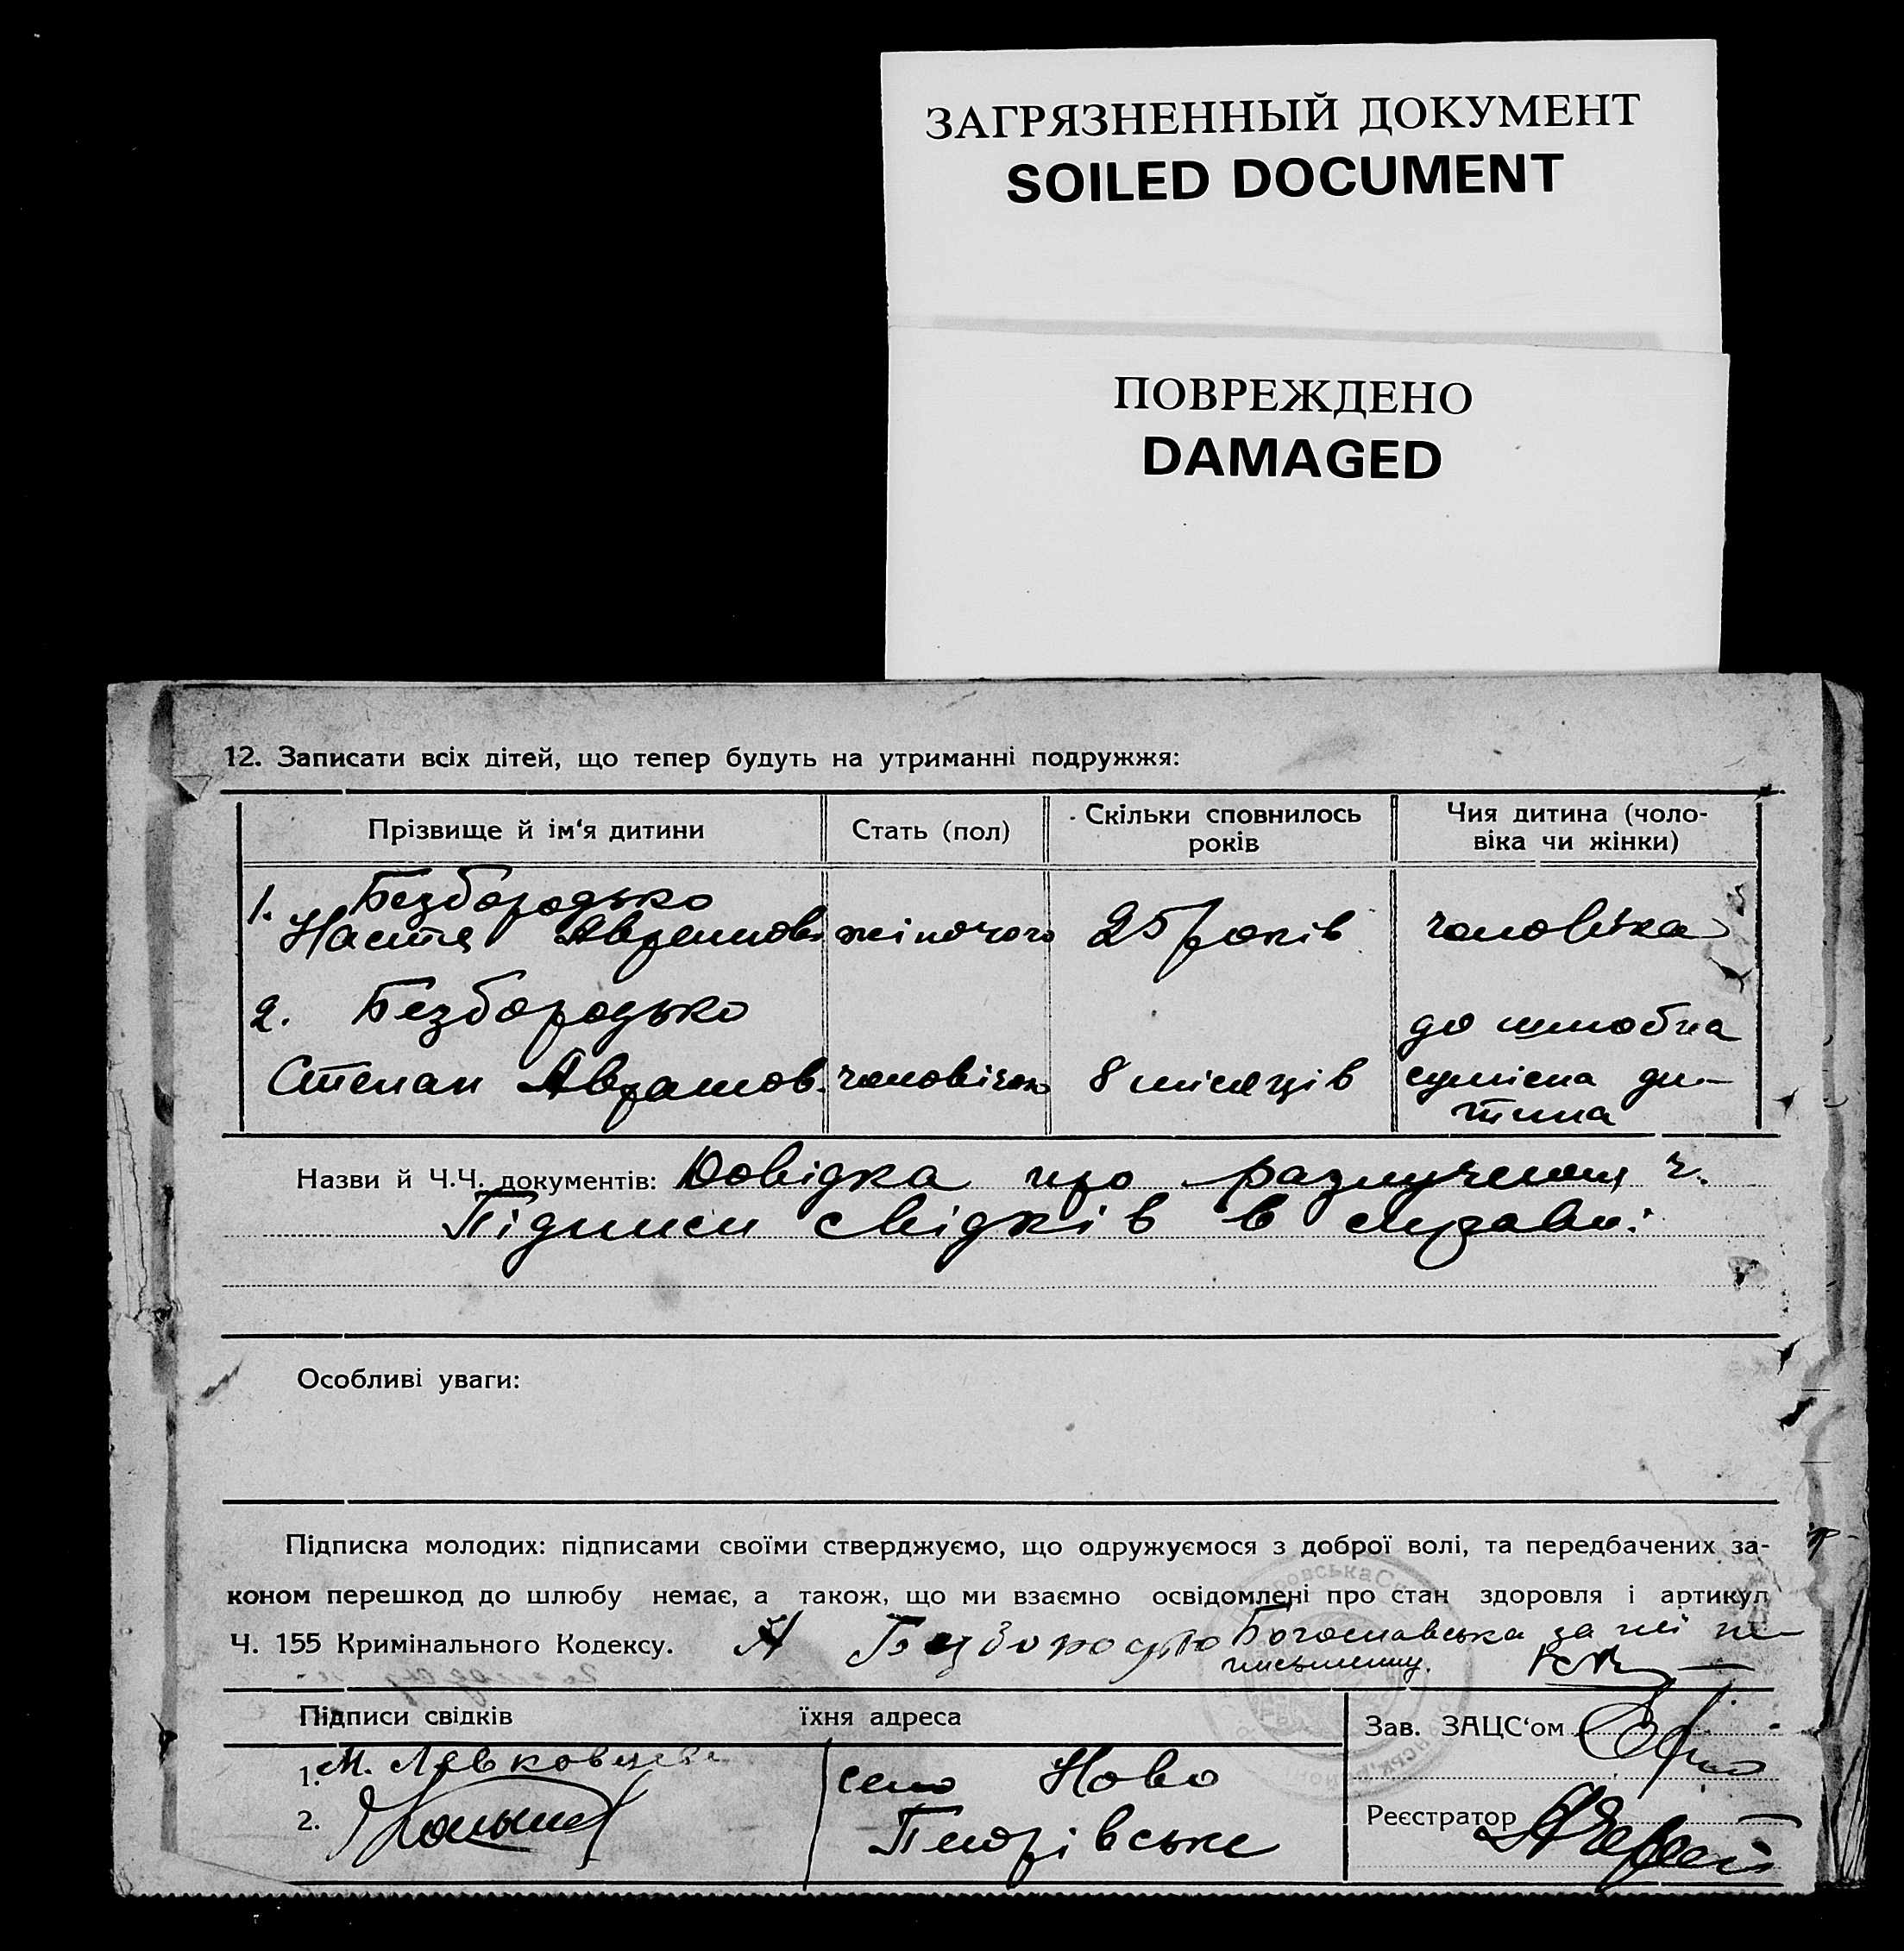 ЗАГРЯЗНЕННЫЙ ДОКУМЕНТ
SOILED DOCUMENT
ПОВРЕЖДЕНО
DAMAGED
12. Записати всіх дітей, що тепер будуть на утриманні подружжя:
Прізвище й ім'я дитини
Стать (пол)
Скільки сповнилось
років
Чия дитина (чоло-
віка чи жінки)
1. Безбородько
Настя Аврамов. жіночого 25 років чоловіка
2. Безбородько до шлюбна
Степан Аврамов. чоловічого 8 місяців сумісна ди-
тина
Назви й Ч.Ч. документів: Довідка про разлучення ч.
Підписи свідків в справі.
Особливі уваги:
Підписка молодих: підписами своїми стверджуємо, що одружуємося з доброї волі, та передбачених за-
коном перешкод до шлюбу немає, а також, що ми взаємно освідомлені про стан здоровля і артикул
Ч. 155 Кримінального Кодексу. А Безбородько Богославська за неї не-
письменну.
Підписи свідків їхня адреса
Зав. ЗАЦС'ом
1. М.
село Ново
2.
Реєстратор